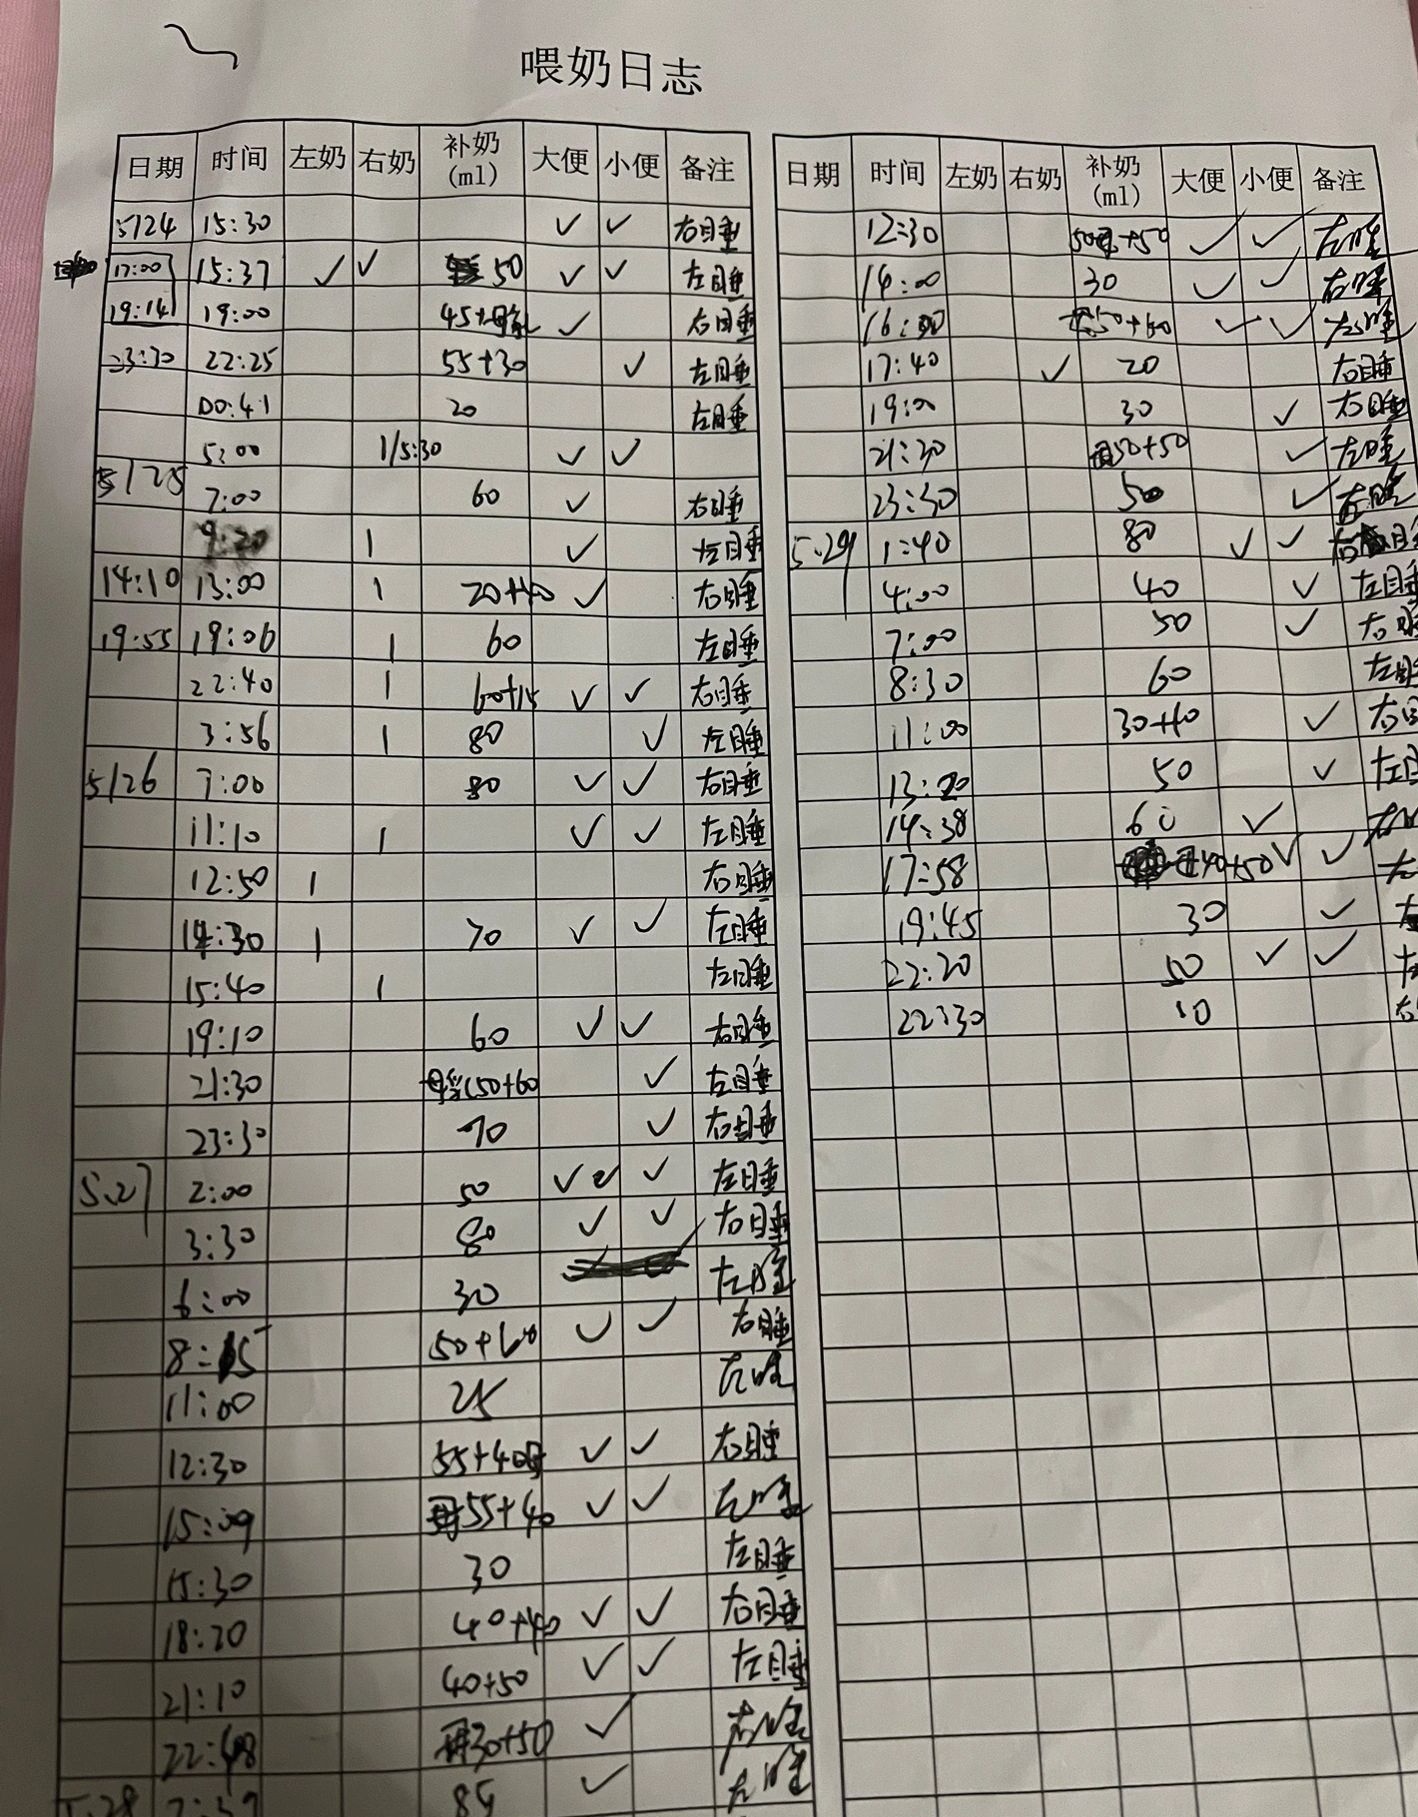 喂奶日志
日期 时间 左奶 右奶 补奶(ml) 大便 小便 备注
5/24 15:30 ✓ ✓ 右睡
17:00 15:37 ✓ ✓ 50 ✓ ✓ 左睡
19:14 19:00 45+母乳 ✓ 右睡
23:30 22:25 55+30 ✓ 左睡
00:41 20 左睡
5:00 1/5:30 ✓ ✓
5/25 7:00 60 ✓ 右睡
9:20 1 ✓ 左睡
14:10 13:00 1 20+40 ✓ 右睡
19:55 19:06 1 60 左睡
22:40 1 60+15 ✓ ✓ 右睡
3:56 1 80 ✓ 左睡
5/26 7:00 80 ✓ ✓ 右睡
11:10 1 ✓ ✓ 左睡
12:50 1 右睡
14:30 1 70 ✓ ✓ 左睡
15:40 1 左睡
19:10 60 ✓ ✓ 右睡
21:30 母乳50+60 ✓ 左睡
23:30 70 ✓ 右睡
5.27 2:00 50 ✓ ✓ 左睡
3:30 80 ✓ ✓ 右睡
6:00 30 左睡
8:15 50+60 ✓ ✓ 右睡
11:00 25 左睡
12:30 55+40母 ✓ ✓ 右睡
15:09 母55+40 ✓ ✓ 左睡
15:30 30 左睡
18:20 40+40 ✓ ✓ 右睡
21:10 40+50 ✓ ✓ 左睡
22:48 母30+50 ✓ 右睡
5.28 85 ✓ 左睡
日期 时间 左奶 右奶 补奶(ml) 大便 小便 备注
12:30 50母+50 ✓ ✓ 左睡
14:00 30 ✓ ✓ 右睡
16:00 母50+60 ✓ ✓ 左睡
17:40 ✓ 20 右睡
19:00 30 ✓ 右睡
21:30 母50+50 ✓ 左睡
23:30 50 ✓ 左睡
5.29 1:40 80 ✓ ✓ 右睡
4:00 40 ✓ 左睡
7:00 50 ✓ 右睡
8:30 60 左睡
11:00 30+40 ✓ 右睡
13:20 50 ✓ 左睡
14:38 60 ✓ 右
17:58 母40+50 ✓ ✓ 左
19:45 30 ✓
22:20 50 ✓ ✓ 左
22:30 10 右